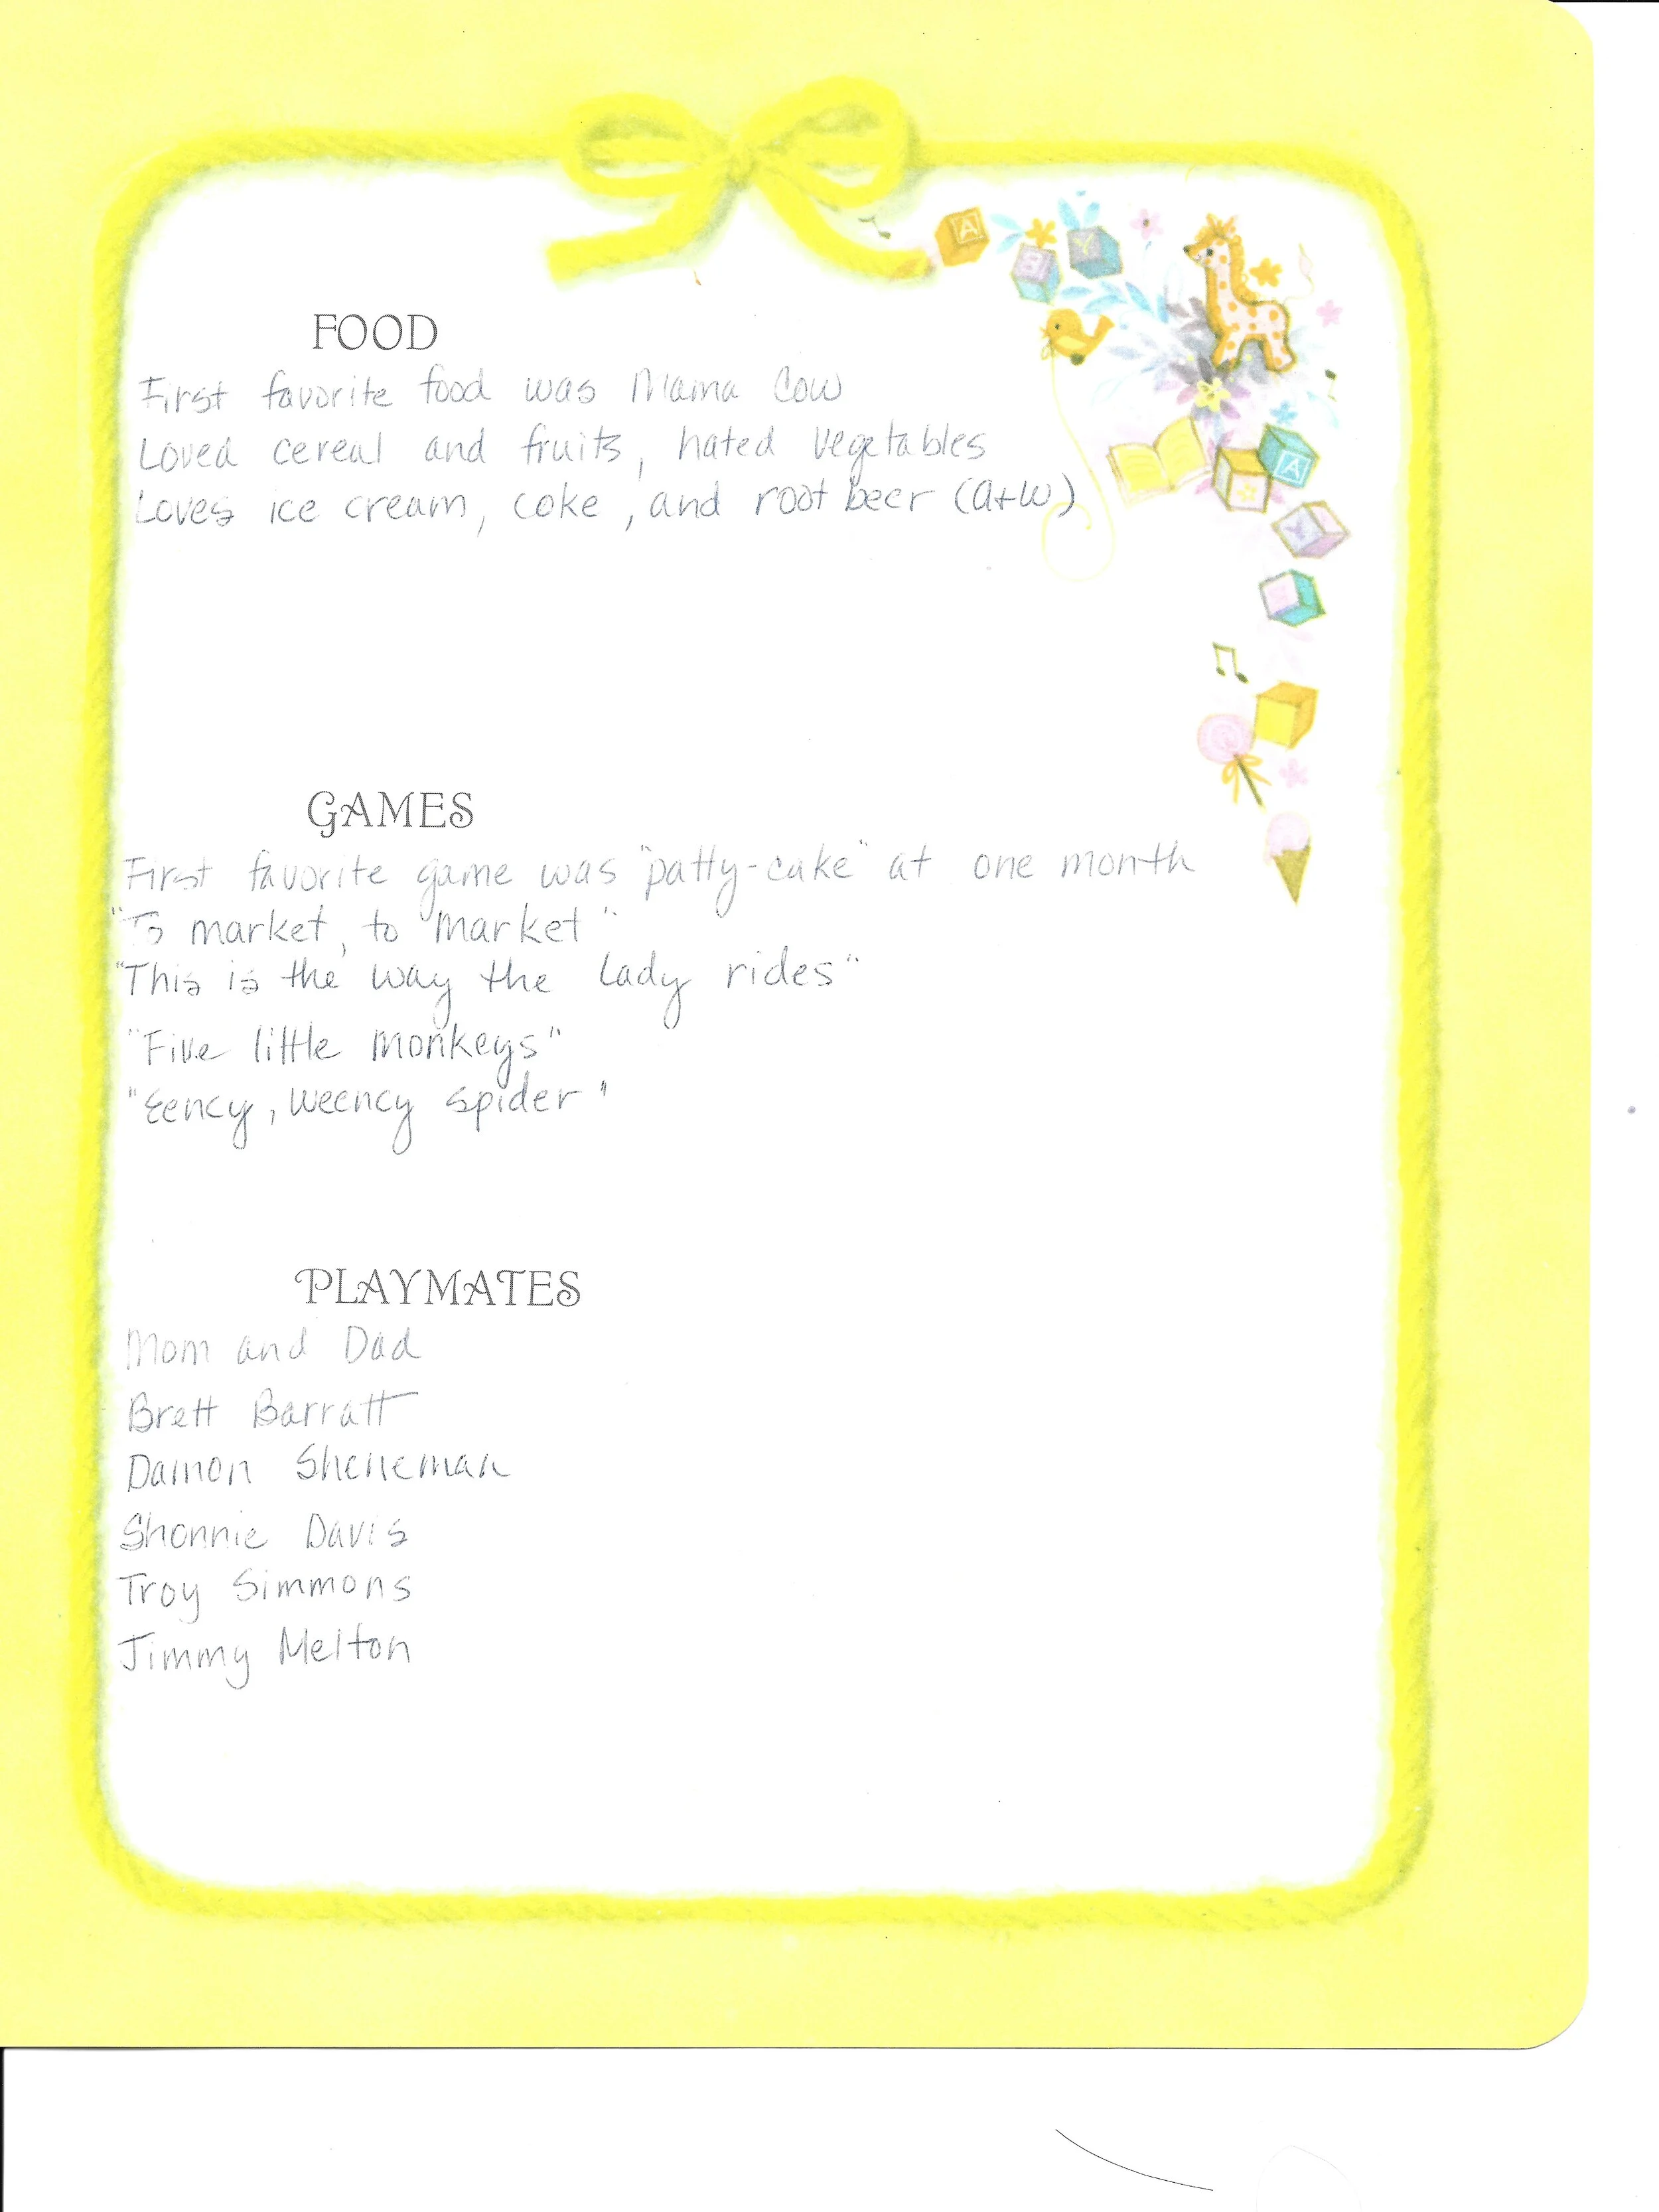 A
B
Y
FOOD
First favorite food was Mama Cow
Loved cereal and fruits, hated vegetables
Loves ice cream, coke, and root beer (a+w)
A
GAMES
First favorite game was "patty-cake" at one month
"To market, to market"
"This is the way the lady rides"
"Five little monkeys"
"Eency, weency spider"
PLAYMATES
Mom and Dad
Brett Barratt
Damon Sheneman
Shonnie Davis
Troy Simmons
Jimmy Melton